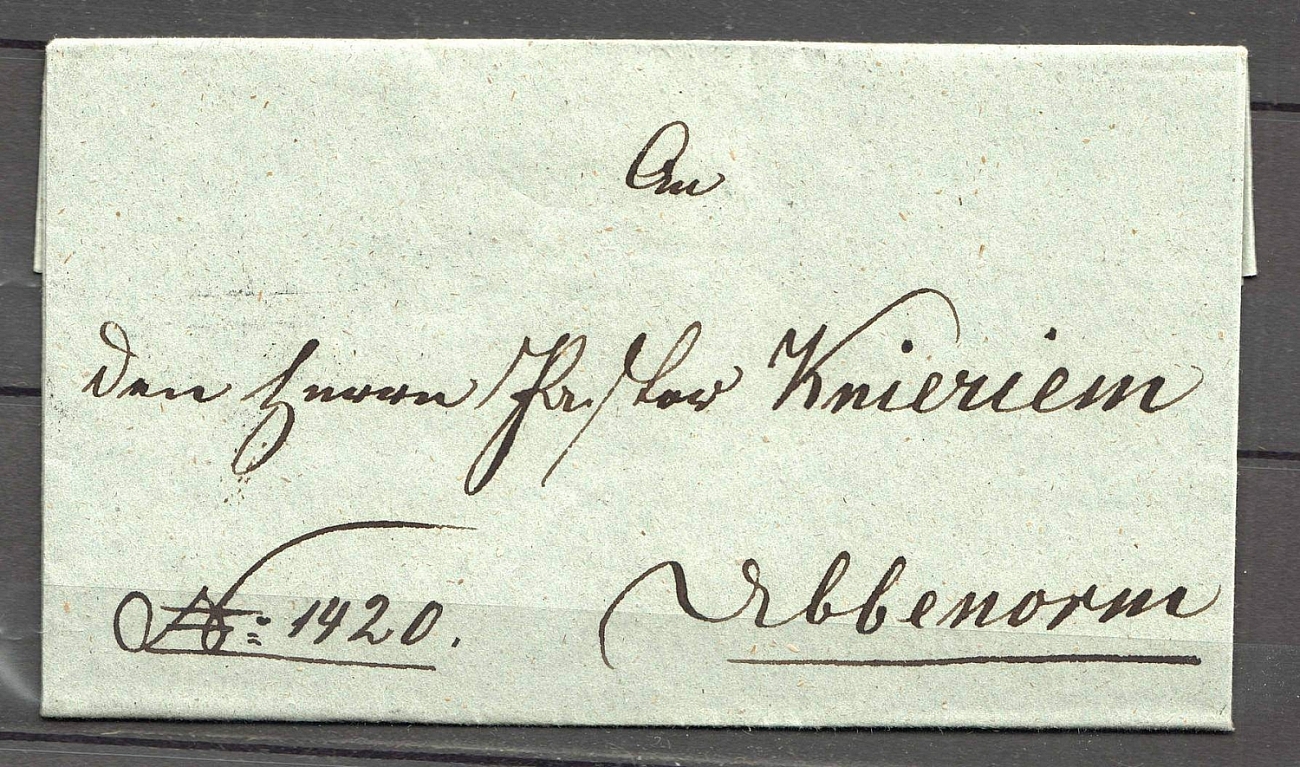 An
den Herrn Pastor Knieriem
No: 1420. Ubbenorm